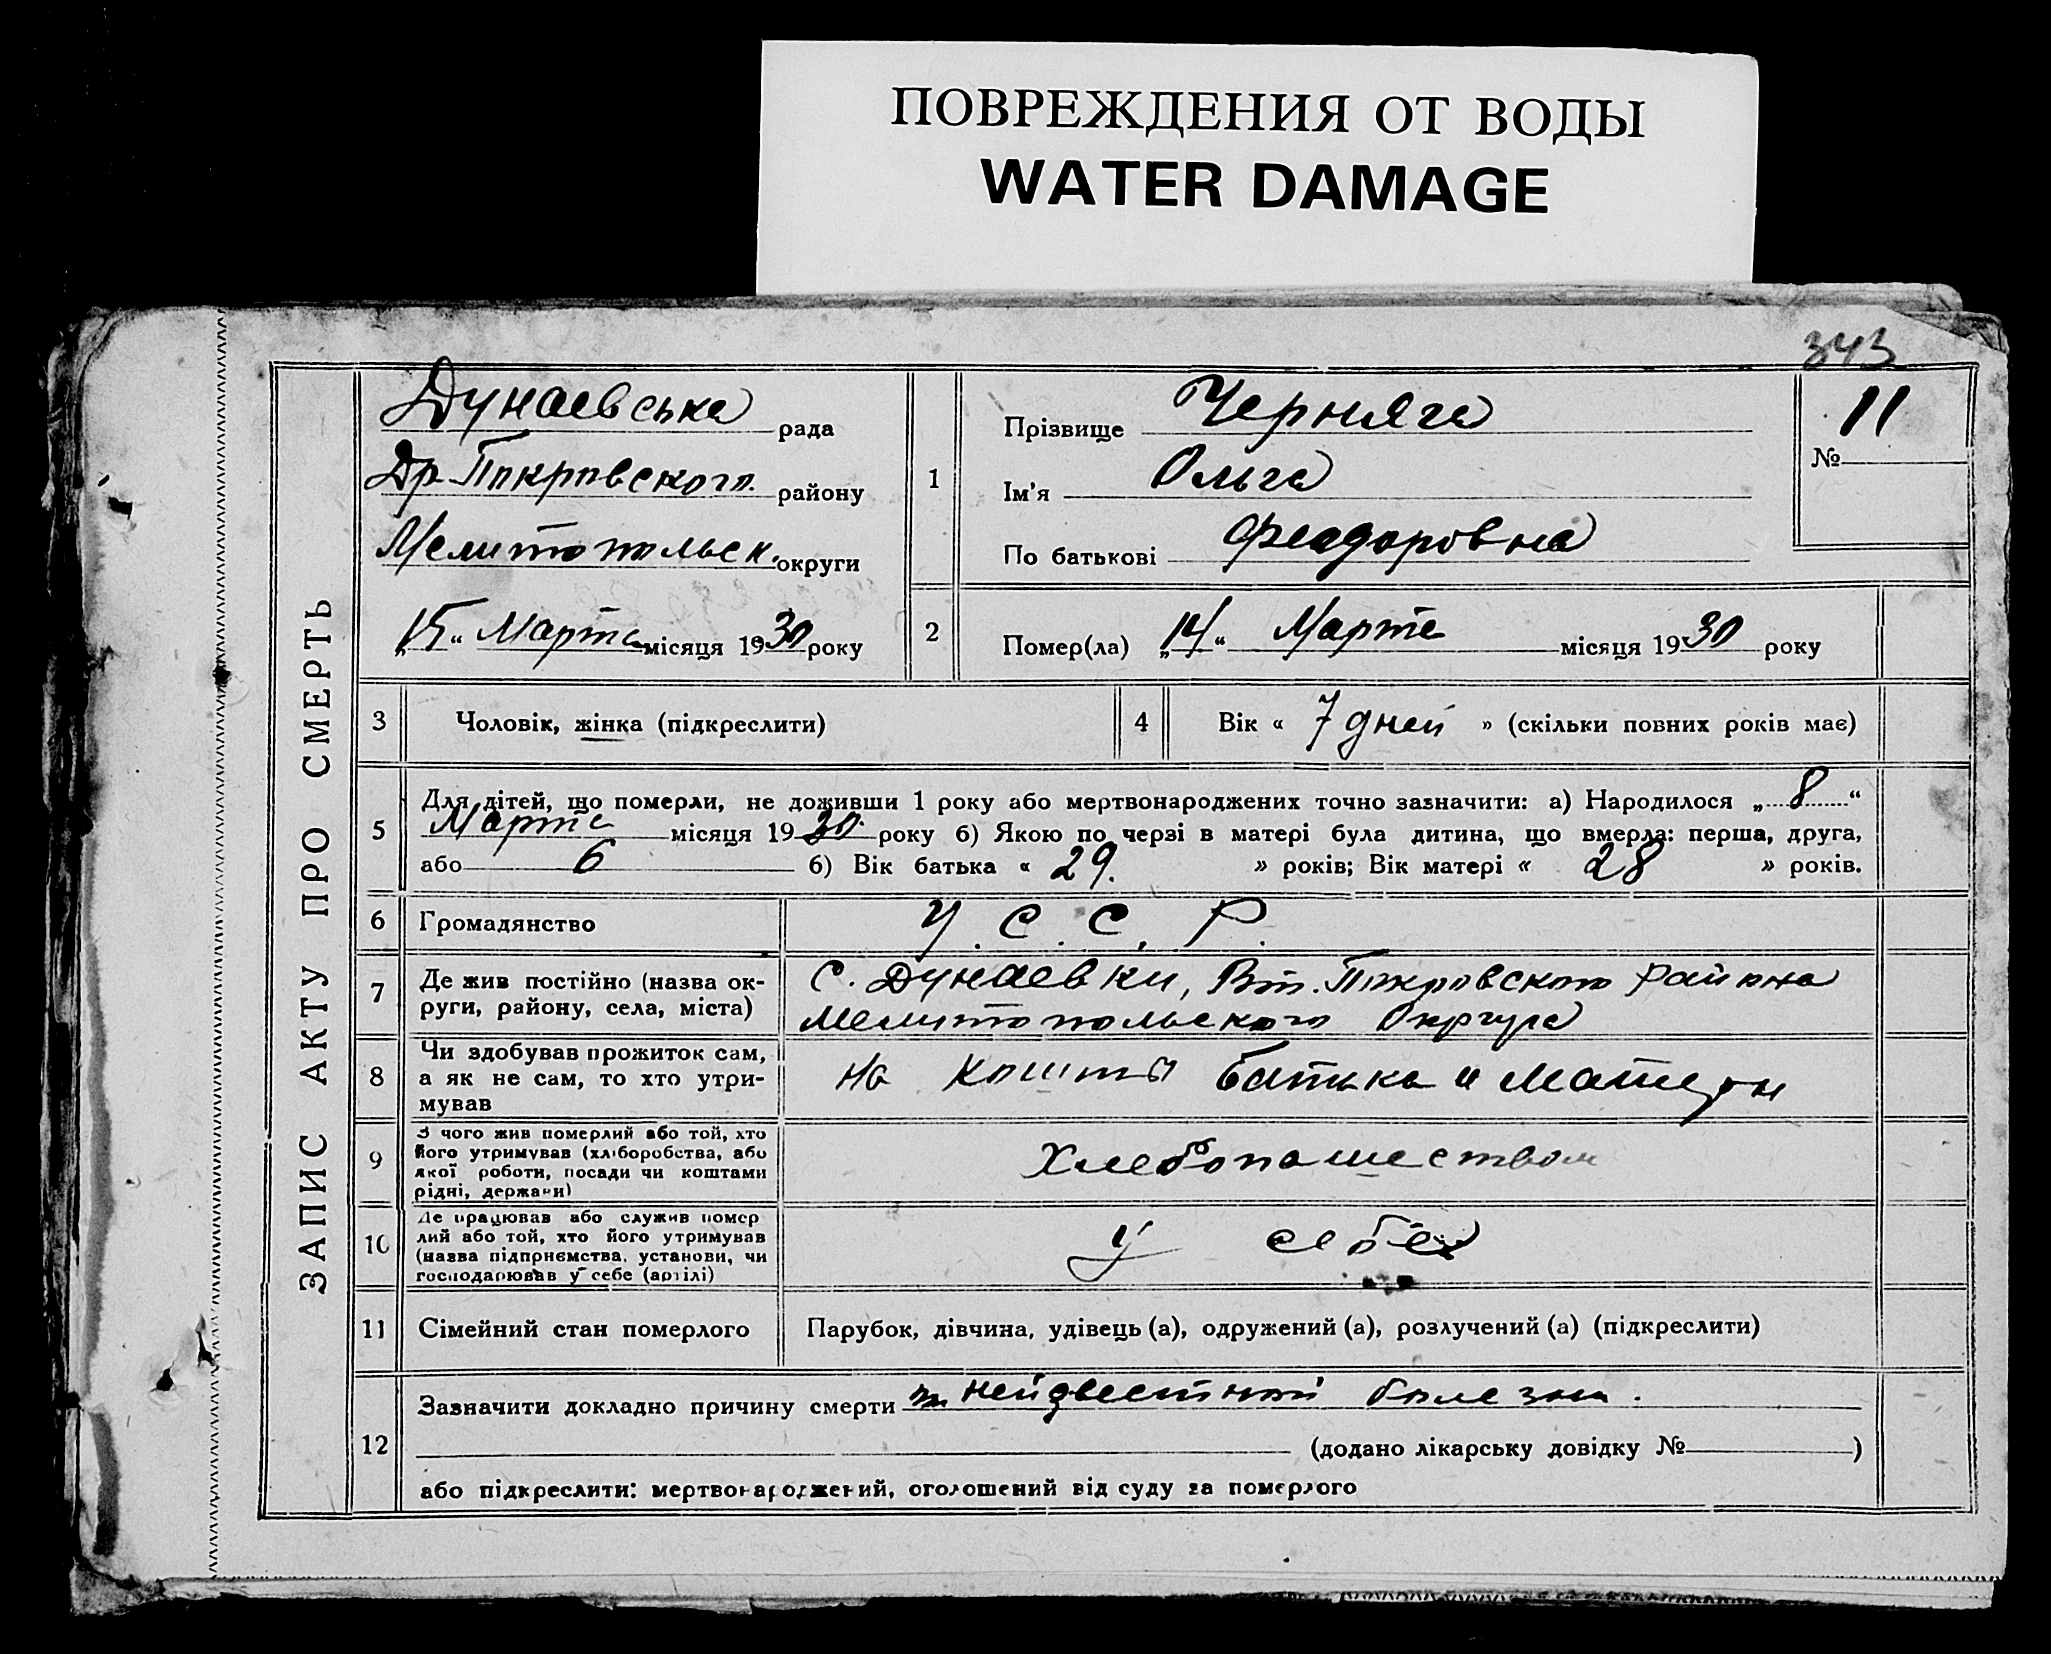 ПОВРЕЖДЕНИЯ ОТ ВОДЫ
WATER DAMAGE
343
ЗАПИС АКТУ ПРО СМЕРТЬ
Дунаевська рада
Др. Покровского району
Мелитопольск. округи
„15“ Марта місяця 1930 року
1
Прізвище Черняга
Ім'я Ольга
По батькові Феадоровна
№ 11
2
Помер(ла) „14“ Марта місяця 1930 року
3 Чоловік, жінка (підкреслити)
4 Вік « 7 дней » (скільки повних років має)
5 Для дітей, що померли, не доживши 1 року або мертвонароджених точно зазначити: а) Народилося „8“
Марта місяця 1930. року б) Якою по черзі в матері була дитина, що вмерла: перша, друга,
або 6 б) Вік батька « 29. » років; Вік матері « 28 » років.
6 Громадянство У. С. С. Р.
7 Де жив постійно (назва ок-
руги, району, села, міста)
С. Дунаевки, Вт. Покровского района
Мелитопольского Округа
8 Чи здобував прожиток сам,
а як не сам, то хто утри-
мував
на кошты батька и Матери
9 З чого жив померлий або той, хто
його утримував (хліборобства, або
якої роботи, посади чи коштами
рідні, держави)
Хлебопашеством
10 Де працював або служив помер
лий або той, хто його утримував
(назва підприємства, установи, чи
господарював у себе (артілі)
у себя
11 Сімейний стан померлого Парубок, дівчина, удівець (а), одружений (а), розлучений (а) (підкреслити)
12 Зазначити докладно причину смерти от неизвестной болезни.
(додано лікарську довідку № )
або підкреслити: мертвонароджений, оголошений від суду за померлого